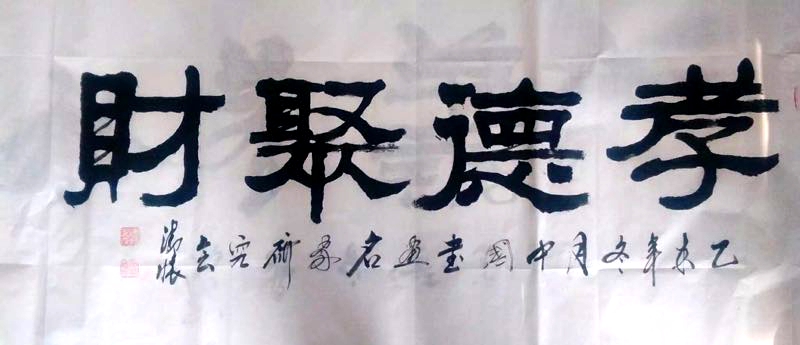 孝德聚財
乙未年冬月中國書画名家研究会